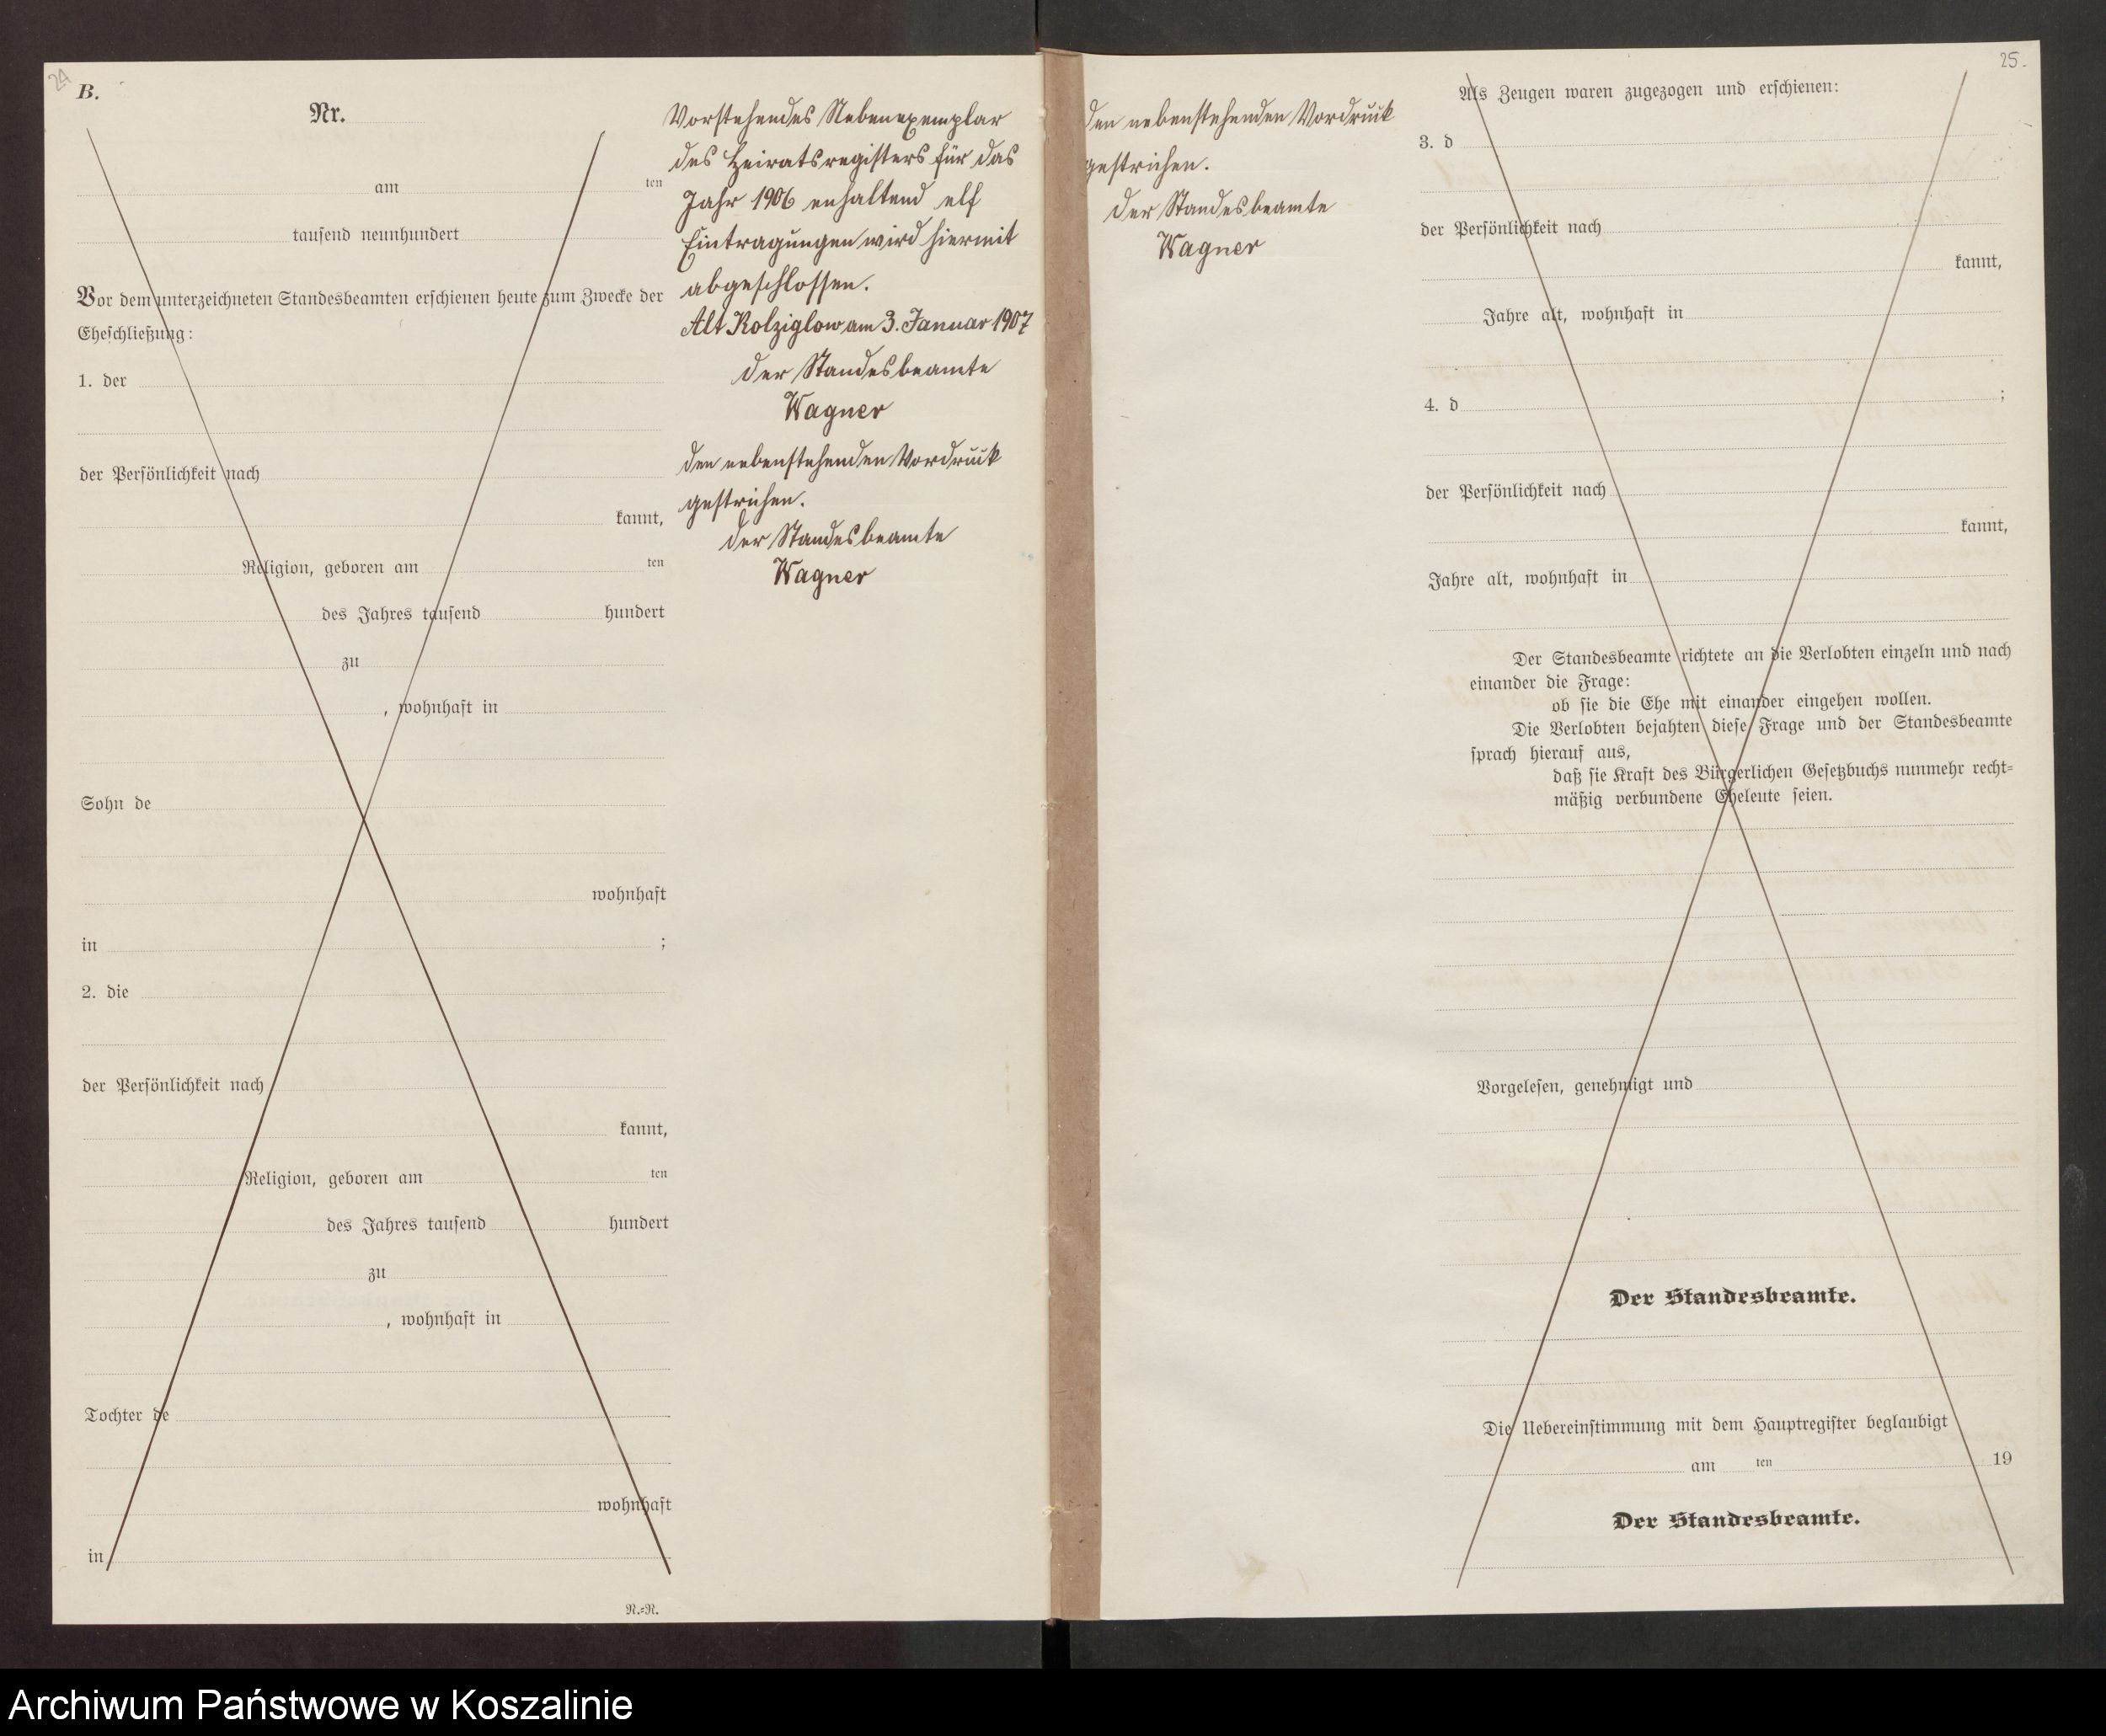 24
B.
Nr.
am ten
tausend neunhundert
Vor dem unterzeichneten Standesbeamten erschienen heute zum Zwecke der
Eheschließung:
1. der
der Persönlichkeit nach
kannt,
Religion, geboren am ten
des Jahres tausend hundert
zu
, wohnhaft in
Sohn de
wohnhaft
in ;
2. die
der Persönlichkeit nach
kannt,
Religion, geboren am ten
des Jahres tausend hundert
zu
, wohnhaft in
Tochter de
wohnhaft
in
R.=R.
Vorstehendes Nebenexemplar
des Heiratsregisters für das
Jahr 1906 enhaltend elf
Eintragungen wird hiermit
abgeschlossen.
Alt Kolziglow am 3. Januar 1907
der Standesbeamte
Wagner
den nebenstehenden Vordruck
gestrichen.
der Standesbeamte
Wagner
den nebenstehenden Vordruck
gestrichen.
der Standesbeamte
Wagner
25.
Als Zeugen waren zugezogen und erschienen:
3. d
der Persönlichkeit nach
kannt,
Jahre alt, wohnhaft in
4. d ;
der Persönlichkeit nach
kannt,
Jahre alt, wohnhaft in
Der Standesbeamte richtete an die Verlobten einzeln und nach
einander die Frage:
ob sie die Ehe mit einander eingehen wollen.
Die Verlobten bejahten diese Frage und der Standesbeamte
sprach hierauf aus,
daß sie Kraft des Bürgerlichen Gesetzbuchs nunmehr recht=
mäßig verbundene Eheleute seien.
Vorgelesen, genehmigt und
Der Standesbeamte.
Die Uebereinstimmung mit dem Hauptregister beglaubigt
am ten 19
Der Standesbeamte.
Archiwum Państwowe w Koszalinie